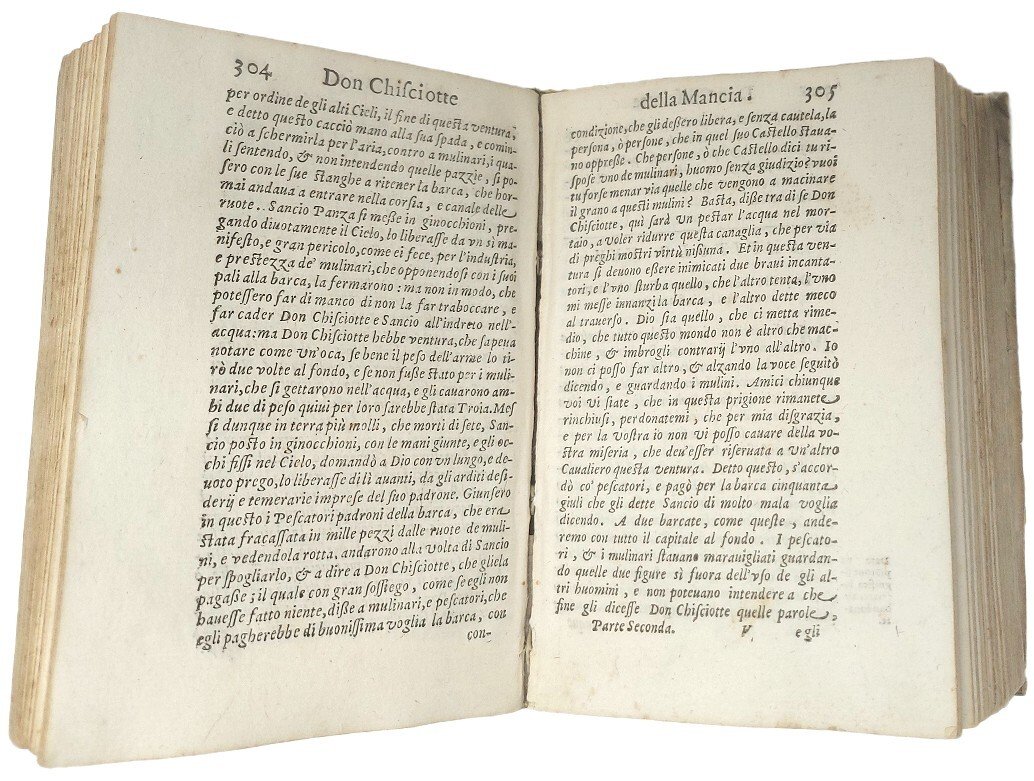 304
Don Chiſciotte
per ordine de gli alti Cieli, il fine di queſta ventura,
e detto queſto cacciò mano alla sua ſpada, e comin-
ciò a ſchermirla per l'aria, contro a mulinari, i qua-
li ſentendo, & non intendendo quelle pazzie, ſi po-
ſero con le ſue ſtanghe a ritener la barca, che hor-
mai andaua a entrare nella corſia, e canale delle
ruote. Sancio Panza ſi meſſe in ginocchioni, pre-
gando diuotamente il Cielo, lo liberaſſe da vn sì ma-
nifeſto, e gran pericolo, come ci fece, per l'induſtria,
e preſtezza de' mulinari, che opponendoſi con i ſuoi
pali alla barca, la fermarono: ma non in modo, che
poteſſero far di manco di non la far traboccare, e
far cader Don Chiſciotte e Sancio all'indreto nell'-
acqua: ma Don Chiſciotte hebbe ventura, che ſapeua
notare come vn'oca, ſe bene il peſo dell'arme lo ti-
rò due volte al fondo, e ſe non fuſſe ſtato per i muli-
nari, che ſi gettarono nell'acqua, e gli cauarono am-
bi due di peſo quiui per loro ſarebbe ſtata Troia. Meſ
ſi dunque in terra più molli, che morti di ſete, San-
cio poſto in ginocchioni, con le mani giunte, e gli oc-
chi fiſſi nel Cielo, domandò a Dio con vn lungo, e de-
uoto prego, lo liberaſſe di lì auanti, da gli arditi deſi-
derij e temerarie impreſe del ſuo padrone. Giunſero
in queſto i Peſcatori padroni della barca, che era
ſtata fracaſſata in mille pezzi dalle ruote de muli-
ni, e vedendola rotta, andarono alla volta di Sancio
per ſpogliarlo, & a dire a Don Chiſciotte, che gliela
pagaſſe; il quale con gran ſoſſiego, come ſe egli non
haueſſe fatto niente, diſſe a mulinari, e peſcatori, che
egli pagherebbe di buoniſſima voglia la barca, con
con-
della Mancia.
305
condizione, che gli deſſero libera, e ſenza cautela, la
perſona, ò perſone, che in quel ſuo Caſtello ſtaua-
no oppreſſe. Che perſone, ò che Caſtello dici tu ri-
ſpoſe vno de mulinari, huomo ſenza giudizio? vuoi
tu forſe menar via quelle che vengono a macinare
il grano a queſti mulini? Baſta, diſſe tra di ſe Don
Chiſciotte, qui ſarà vn peſtar l'acqua nel mor-
taio, a voler ridurre queſta canaglia, che per via
di preghi moſtri virtù niſſuna. Et in queſta ven-
tura ſi deuono eſſere inimicati due braui incanta-
tori, e l'vno ſturba quello, che l'altro tenta, l'vno
mi meſſe innanzi la barca, e l'altro dette meco
al trauerſo. Dio ſia quello, che ci metta rime-
dio, che tutto queſto mondo non è altro che mac-
chine, & imbrogli contrarij l'vno all'altro. Io
non ci poſſo far altro, & alzando la voce ſeguitò
dicendo, e guardando i mulini. Amici chiunque
voi vi ſiate, che in queſta prigione rimanete
rinchiuſi, perdonatemi, che per mia diſgrazia,
e per la voſtra io non vi poſſo cauare della vo-
ſtra miſeria, che deu'eſſer riſeruata a vn'altro
Caualiero queſta ventura. Detto queſto, s'accor-
dò co' peſcatori, e pagò per la barca cinquanta
giuli che gli dette Sancio di molto mala voglia
dicendo. A due barcate, come queſte, ande-
remo con tutto il capitale al fondo. I peſcato-
ri, & i mulinari ſtauano marauigliati guardan-
do quelle due figure sì fuora dell'vſo de gli al-
tri huomini, e non poteuano intendere a che
fine gli diceſſe Don Chiſciotte quelle parole,
Parte Seconda. V e gli